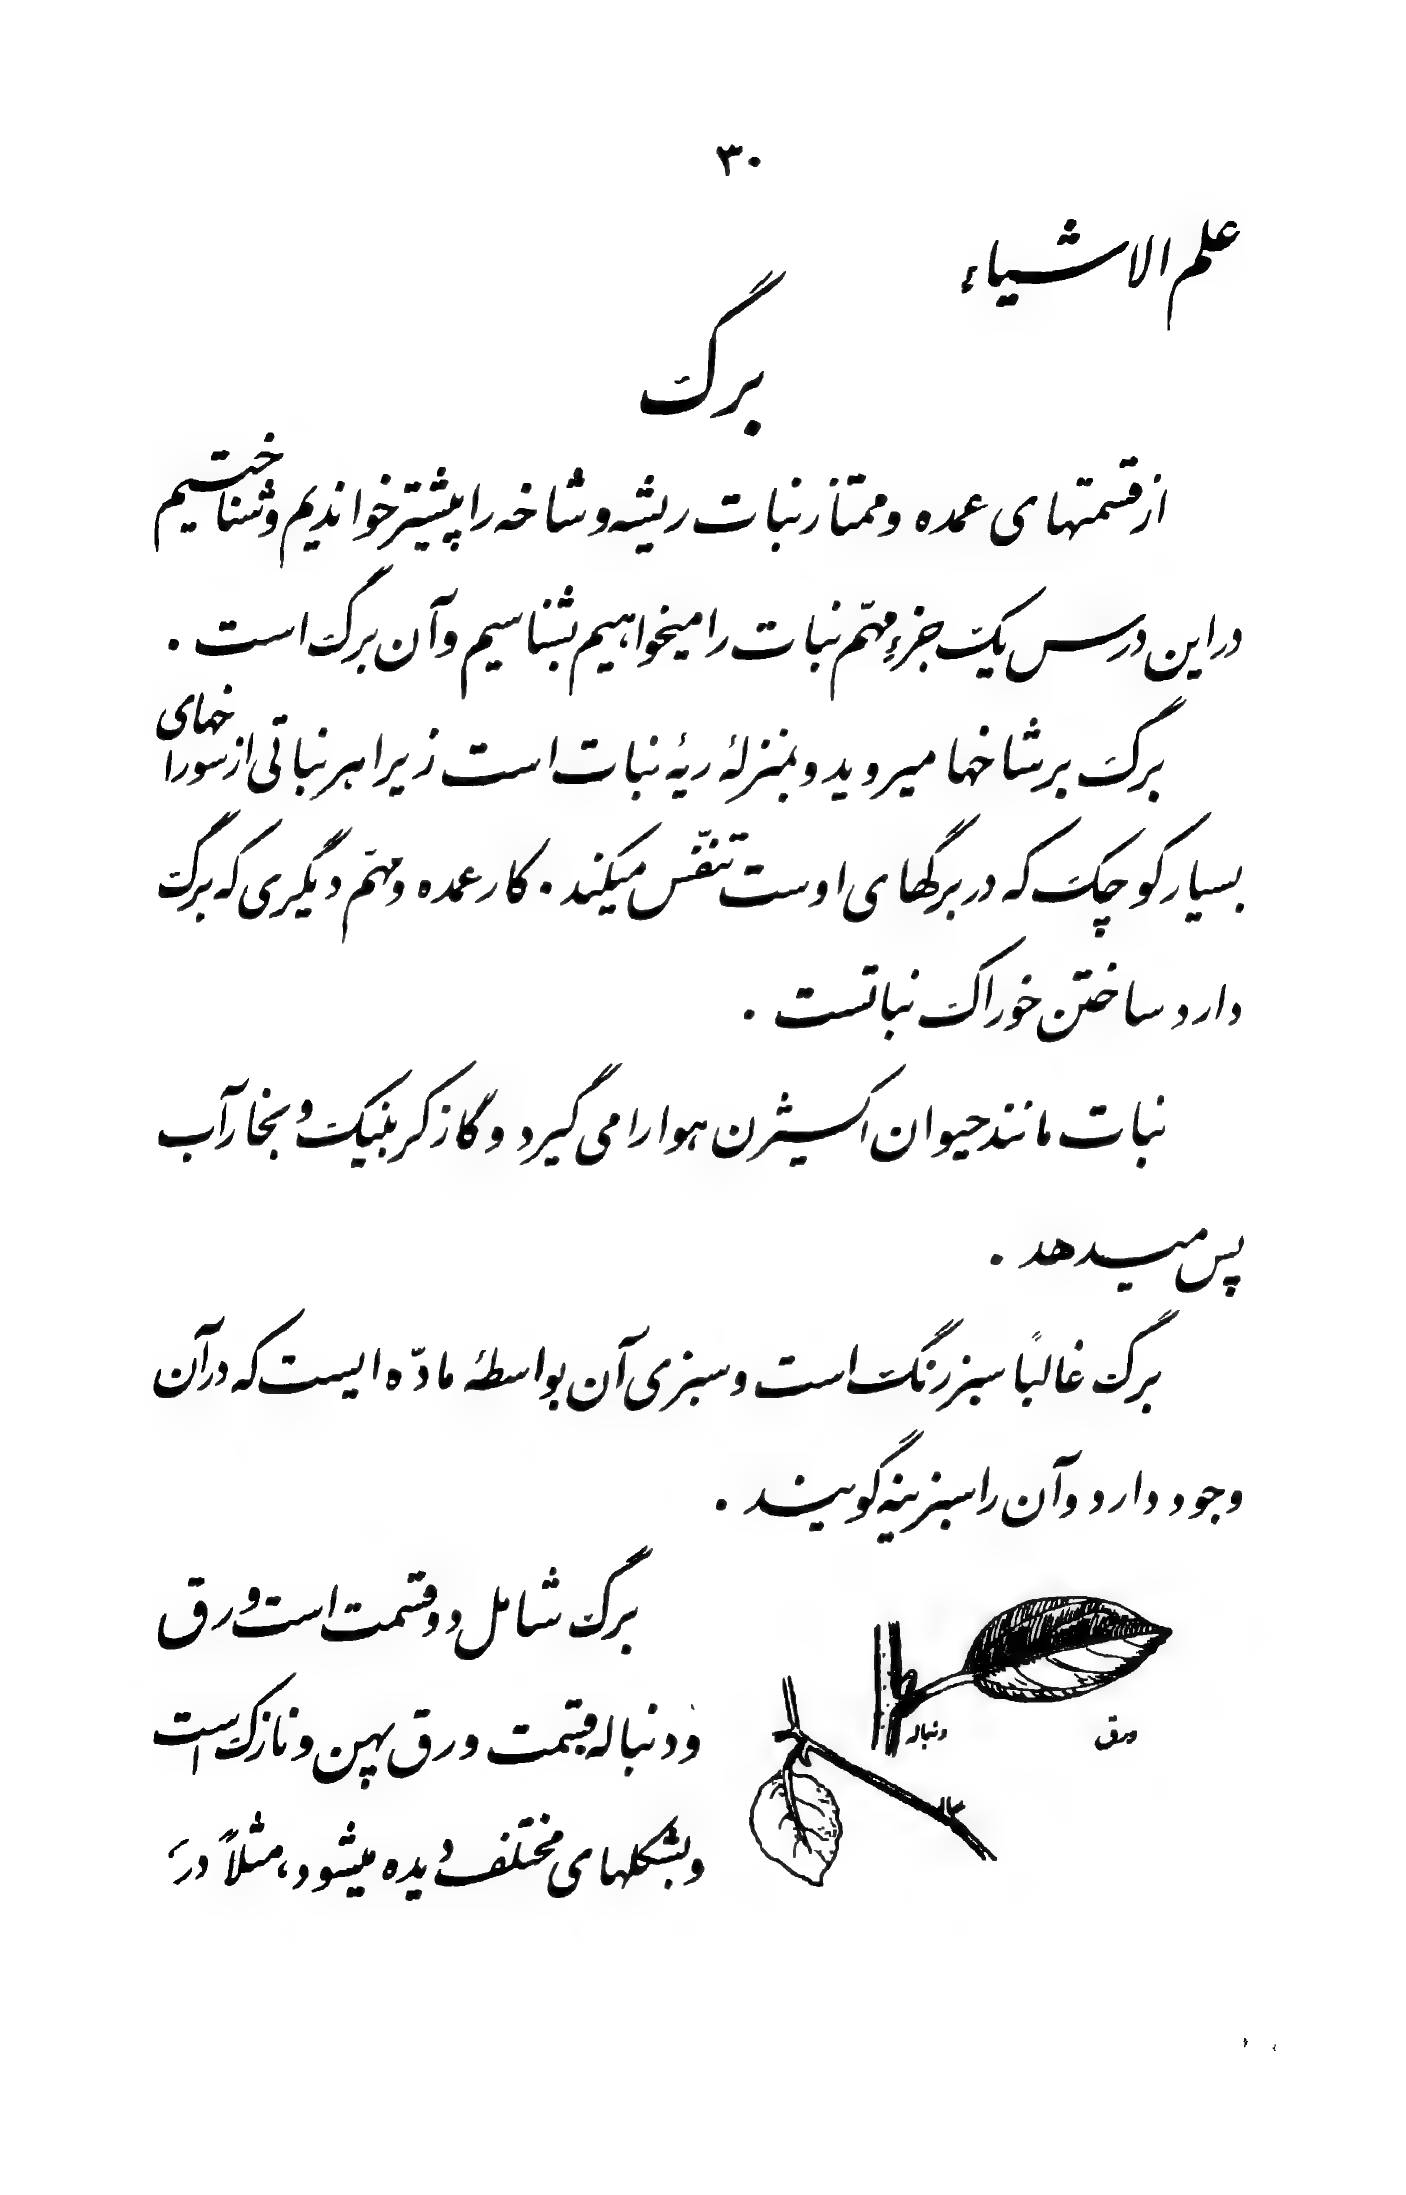 ۳۰
علم الاشیاء
برگ
از قسمتهای عمده و ممتاز نبات ریشه و شاخه را پیشتر خواندیم و شناختیم
در این درس یک جزءِ مهمّ نبات را میخواهیم بشناسیم و آن برگ است .
برگ بر شاخها میروید و بمنزلۀ ریۀ نبات است زیرا هر نباتی از سوراخهای
بسیار کوچک که در برگهای اوست تنفّس میکند . کار عمده و مهمّ دیگری که برگ
دارد ساختن خوراک نباتست .
نبات مانند حیوان اکسیژن هوا را می گیرد و گاز کربنیک و بخار آب
پس میدهد .
برگ غالباً سبز رنگ است و سبزی آن بواسطۀ مادّه ایست که در آن
وجود دارد و آن را سبزینه گویند .
برگ شامل دو قسمت است ورق
و دنباله قسمت ورق پهن و نازک است
و بشکلهای مختلف دیده میشود، مثلاً در
ورق
دنباله